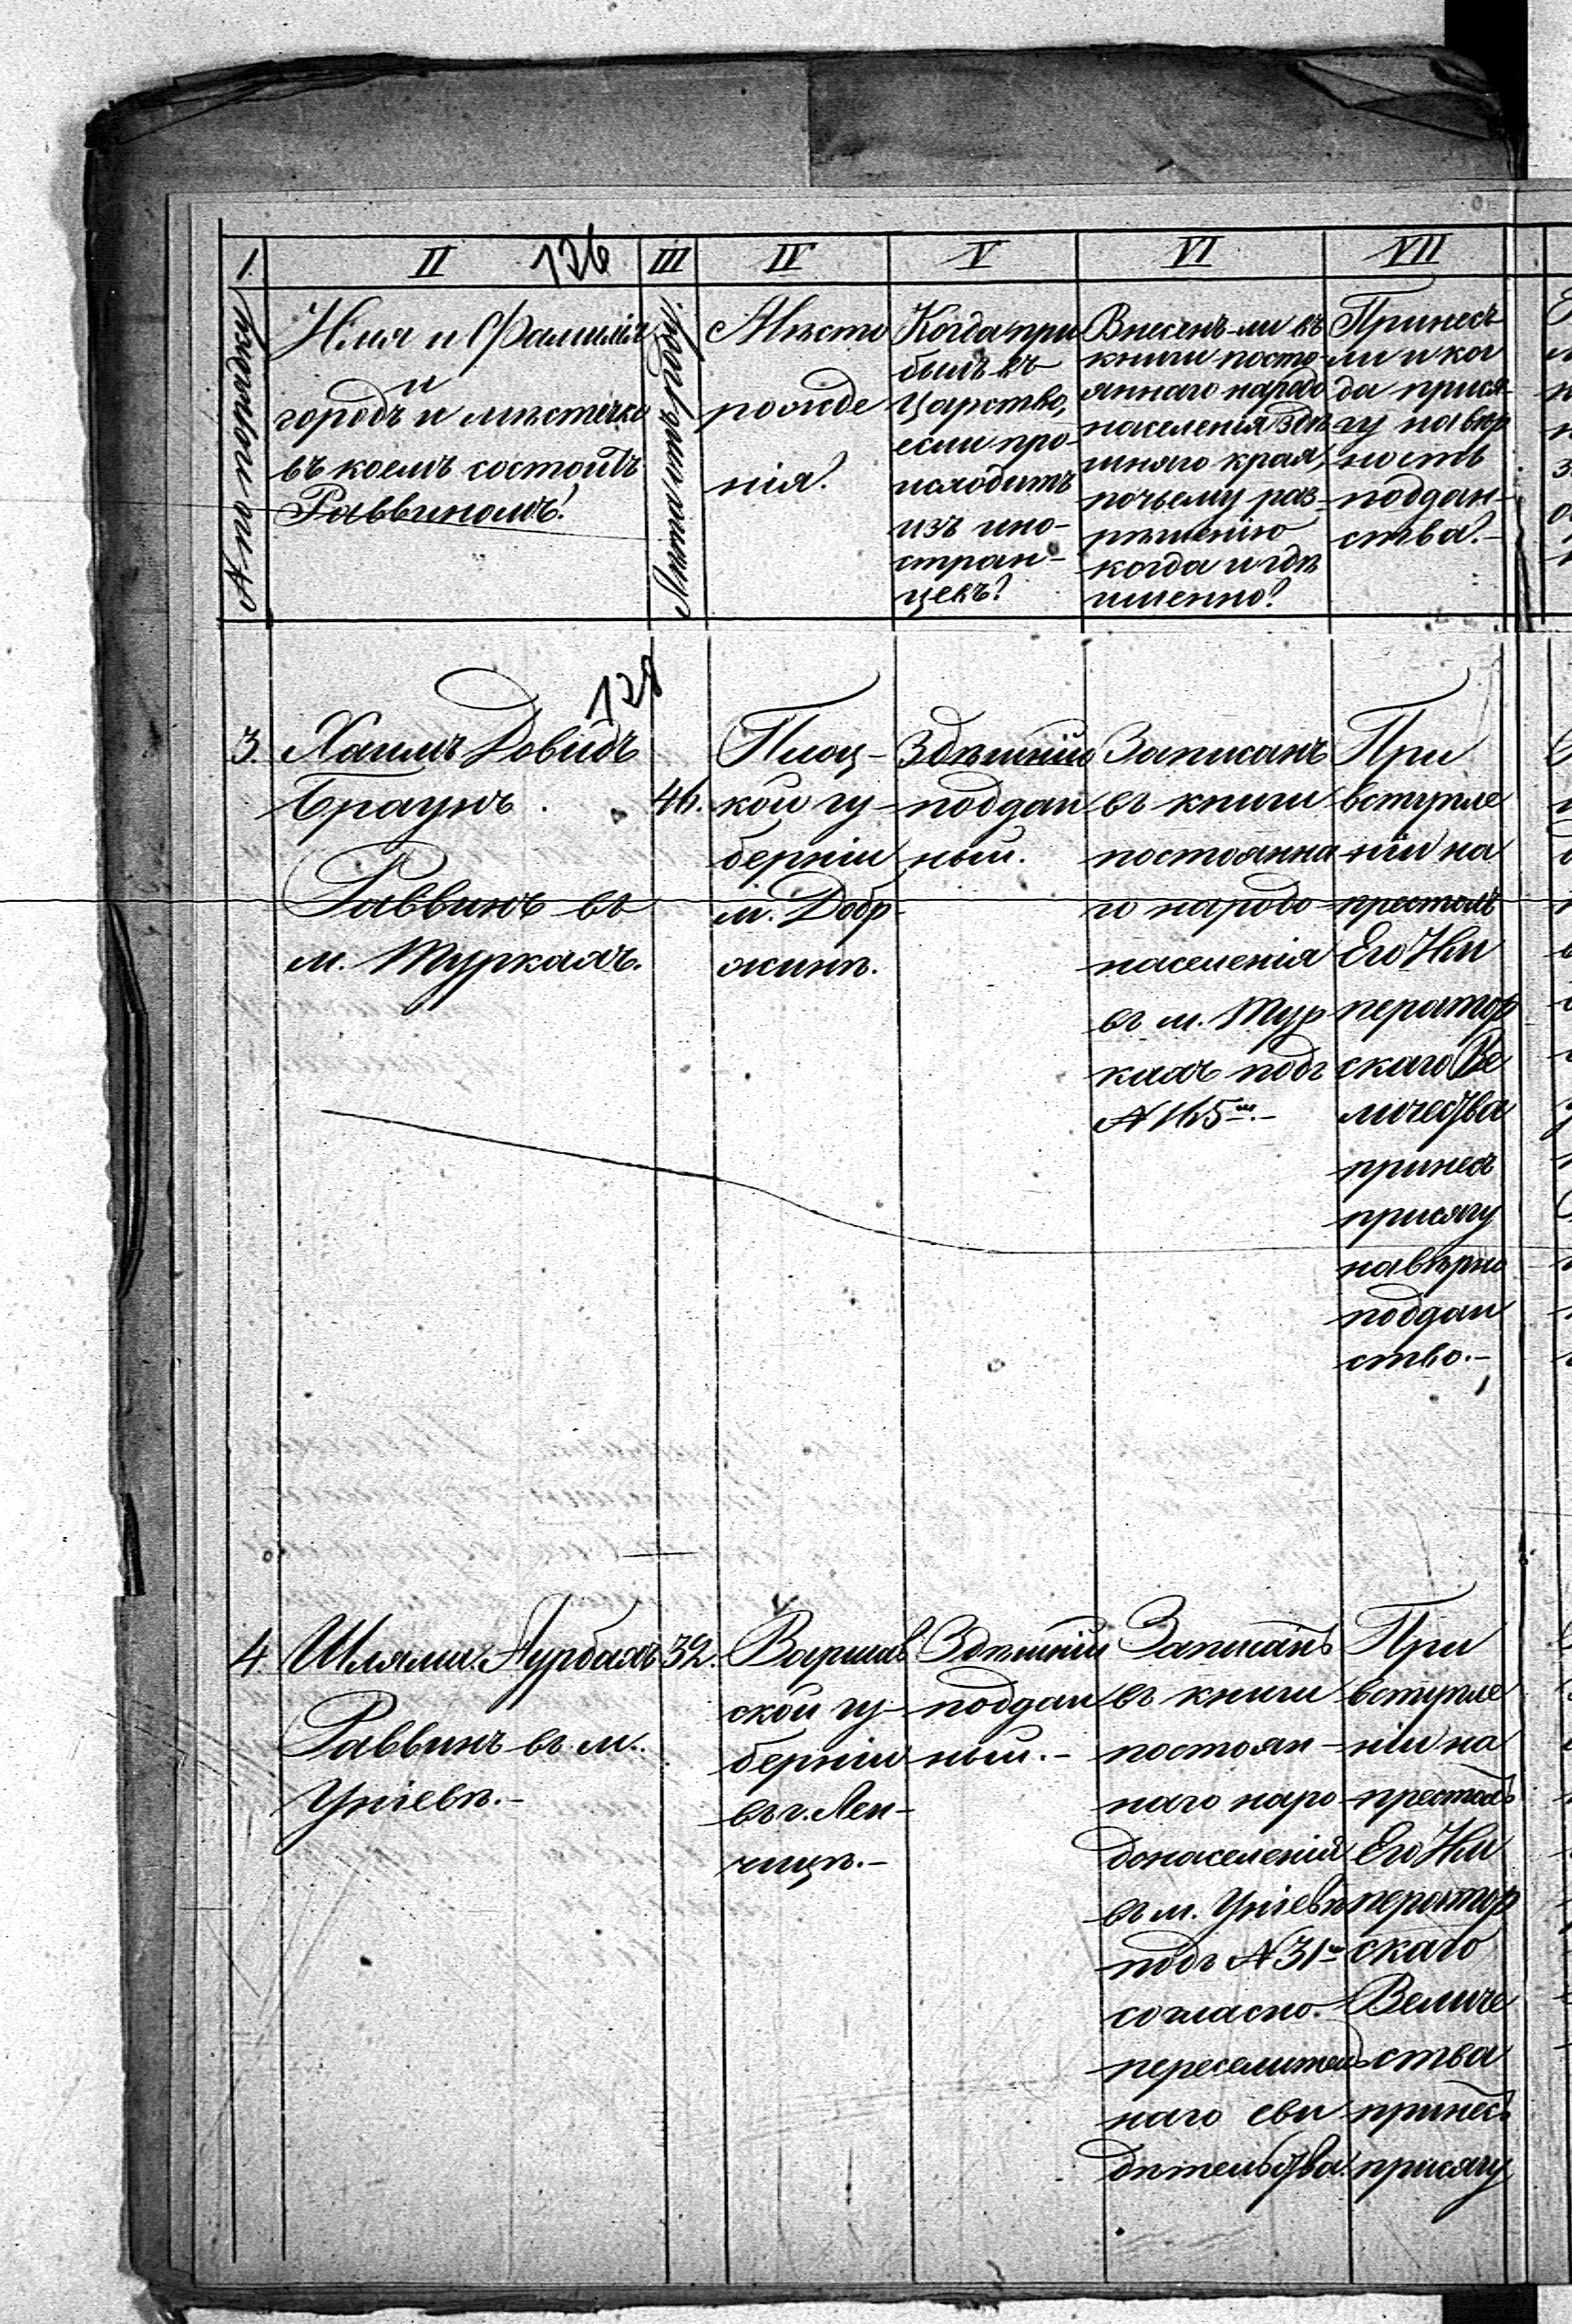 1.
II
126
III
IV
V
VI
VII
№ по порядку
Имя и Фамилія
и
городъ и мѣстечко
въ коемъ состоитъ
Раввиномъ?
Лѣта отъ роду.
Мѣсто
рожде
нія?
Когда при
былъ въ
Царство,
если про-
исходитъ
изъ ино-
стран-
цевъ?
Внесенъ-ли въ
книги посто-
яннаго народо
населенія здѣ
шняго края,
почьему раз-
рѣшенію
когда и гдѣ
именно?
Принесъ
ли и ког
да прися-
гу на вѣр
ность
поддан-
ства?-
128
3.
Хаимъ Довидъ
Браунъ.
Раввинъ въ
м. Туркахъ.
46.
Плоц-
кой гу-
берніи
м. Добр-
жинѣ.
Здѣшній
поддан
ный.
Записанъ
въ книги
постоянна
го народо-
населенія
въ м. Тур
кахъ подъ
№ 165м.-
При
вступле
ніи на
престолъ
Его Им
ператор
скаго Ве
личества
принесъ
присягу
на вѣрно
поддан
ство.-
4.
Шлама Аурбахъ
Раввинъ въ м.
Уніевѣ.-
32.
Варшав
ской гу-
берніи
въ г. Лен-
чицѣ.-
Здѣшній
поддан
ный.-
Записанъ
въ книги
постоян-
наго наро
донаселенія
въ м. Уніевѣ
подъ № 31м
согласно
переселитель
наго сви
дѣтельства.
При
вступле
ніи на
престолъ
Его Им
ператор
скаго
Величе
ства
принесъ
присягу